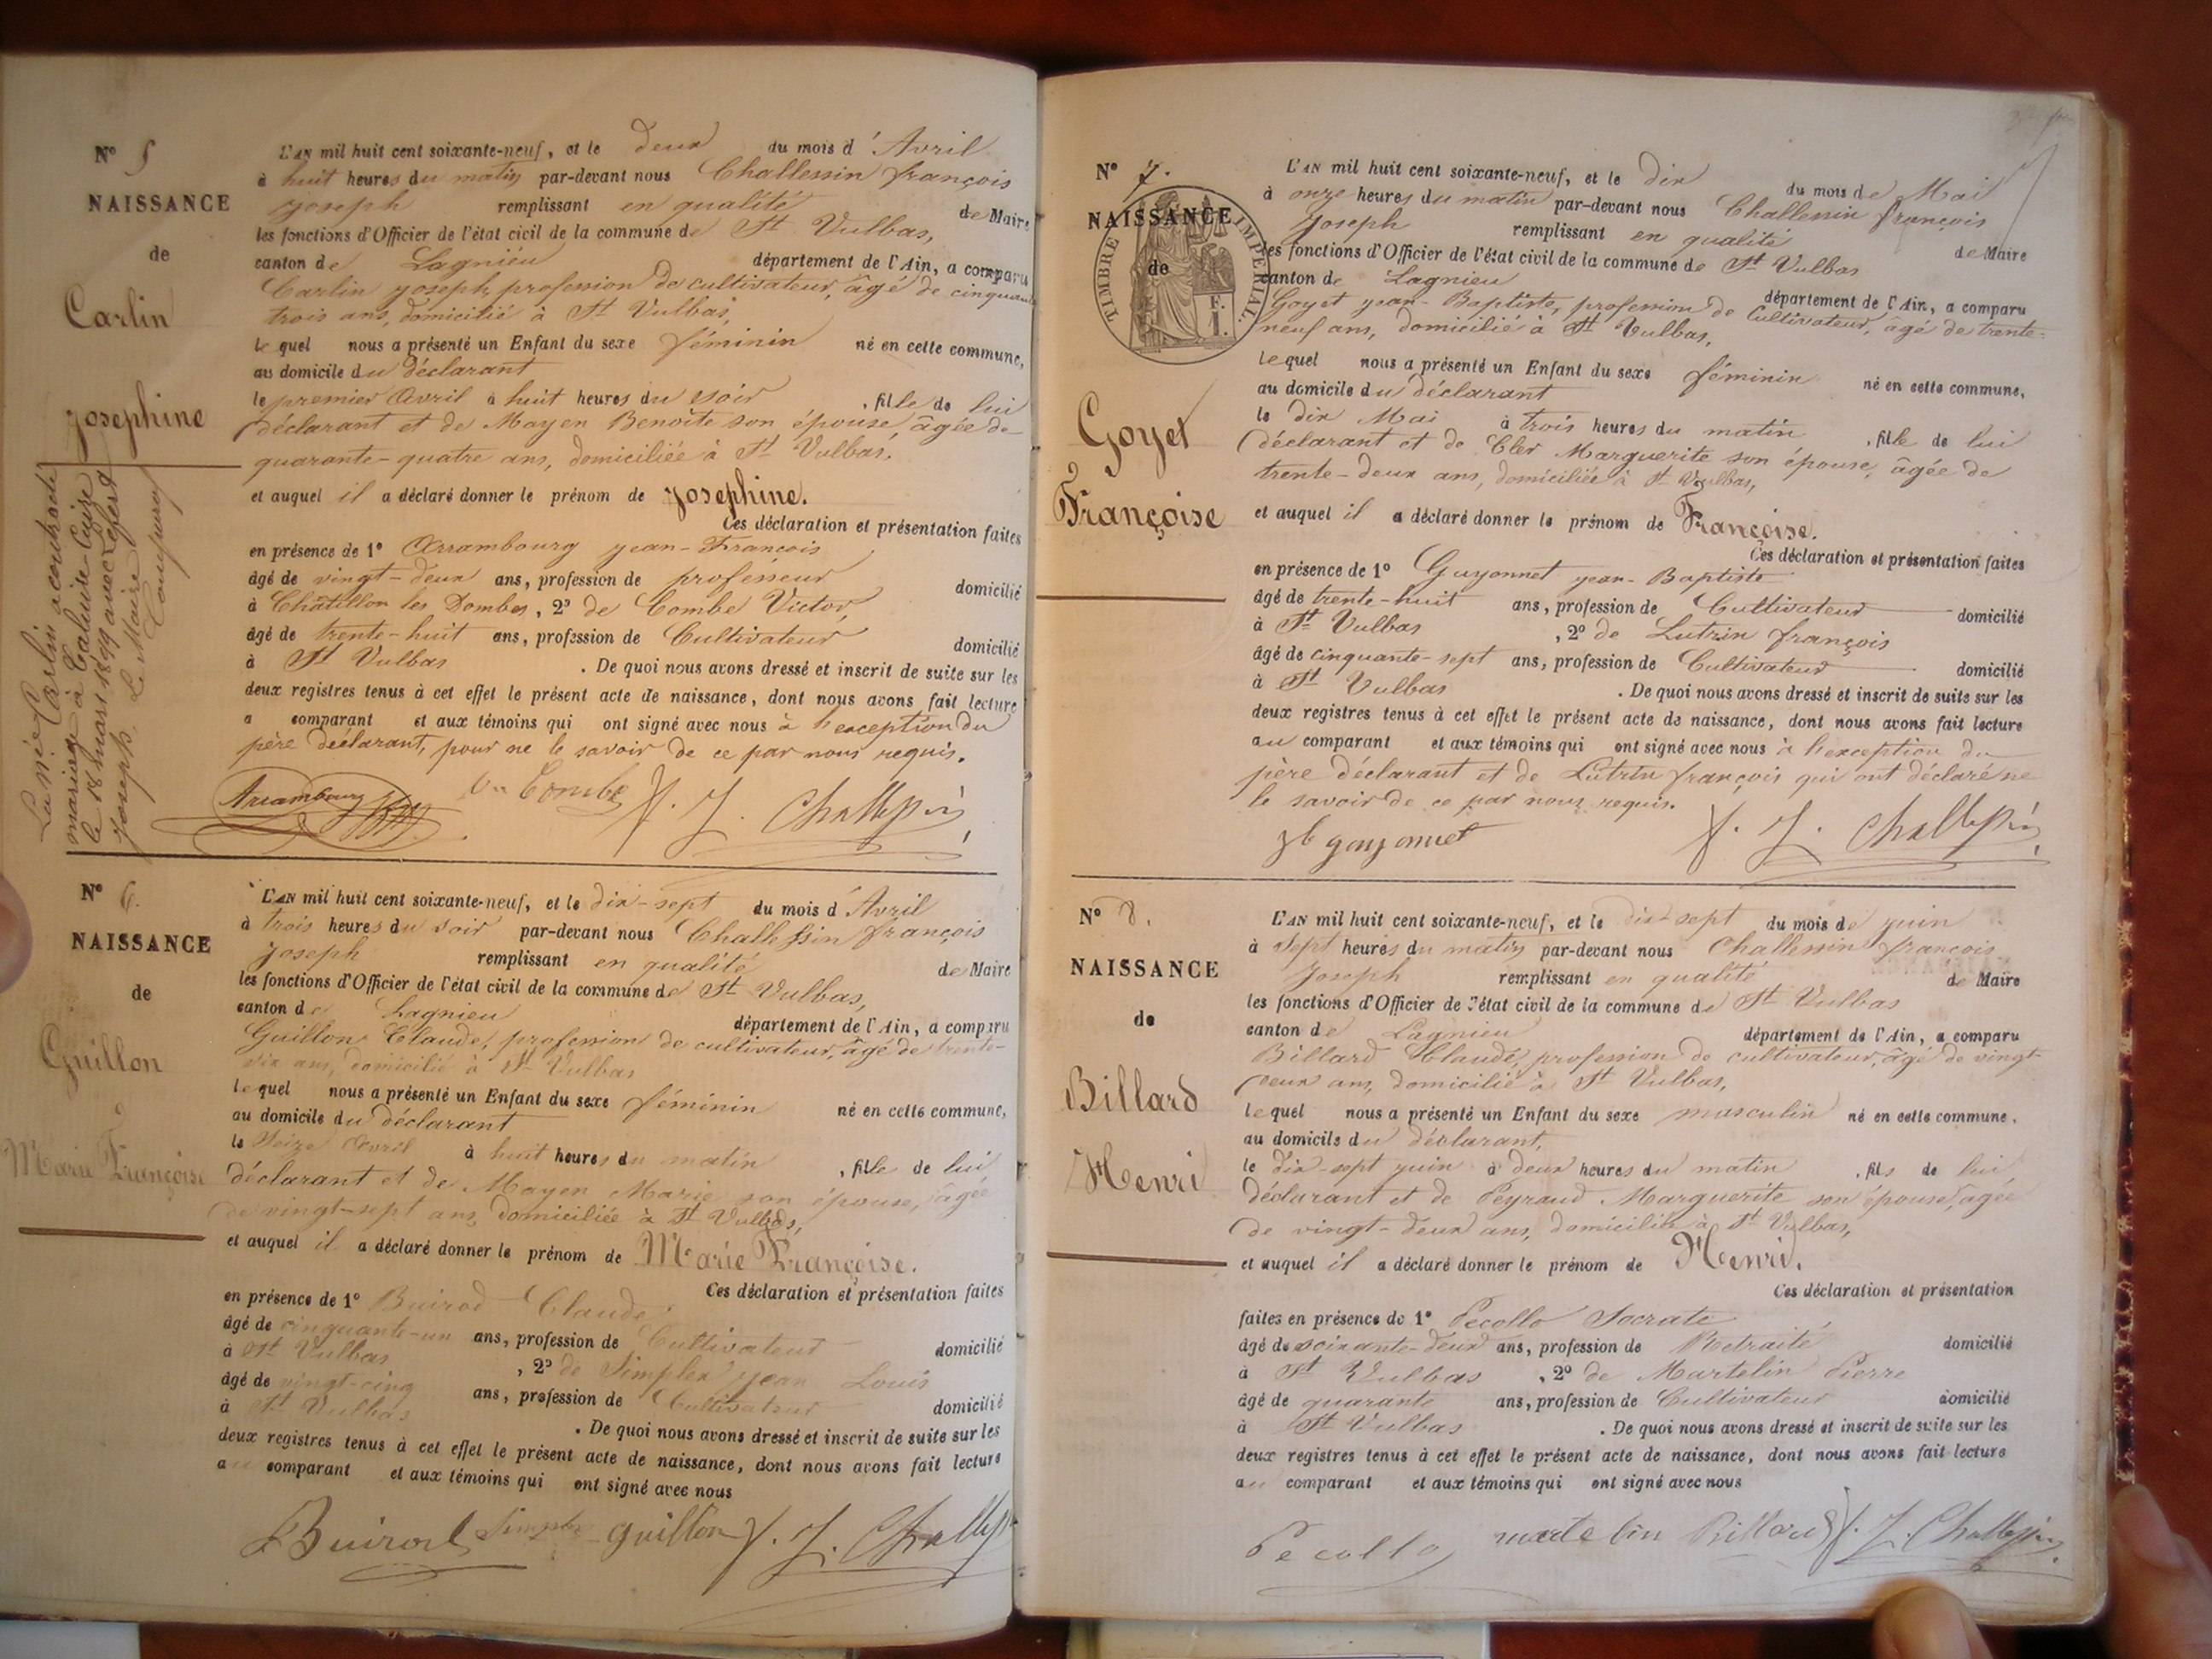 N° 5
NAISSANCE
de
Carlin
Josephine
La née Carlin a contracté
mariage à Caluire Cuire
le 18 mars 1899 avec
Joseph. Le Maire
L'AN mil huit cent soixante-neuf, et le deux du mois d'Avril
à huit heures du matin par-devant nous Challessin françois
Joseph remplissant en qualité de Maire
les fonctions d'Officier de l'état civil de la commune de St Vulbas,
canton de Lagnieu département de l'Ain, a comparu
Carlin Joseph, profession de cultivateur, âgé de cinquante
trois ans, domicilié à St Vulbas,
lequel nous a présenté un Enfant du sexe féminin né en cette commune,
au domicile du déclarant
le premier Avril à huit heures du soir, fille de lui
déclarant et de Mayen Benoîte son épouse, âgée de
quarante-quatre ans, domiciliée à St Vulbas.
et auquel il a déclaré donner le prénom de Josephine.
Ces déclaration et présentation faites
en présence de 1° Arrambourg Jean-François
âgé de vingt-deux ans, profession de professeur domicilié
à Châtillon les Dombes, 2° de Combe Victor,
âgé de trente-huit ans, profession de Cultivateur domicilié
à St Vulbas. De quoi nous avons dressé et inscrit de suite sur les
deux registres tenus à cet effet le présent acte de naissance, dont nous avons fait lecture
a comparant et aux témoins qui ont signé avec nous à l'exception du
père déclarant, pour ne le savoir de ce par nous requis.
Arrambourg Vr Combe f. J. Challessin
N° 6.
NAISSANCE
de
Guillon
Marie Françoise
L'AN mil huit cent soixante-neuf, et le dix-sept du mois d'Avril
à trois heures du soir par-devant nous Challessin françois
Joseph remplissant en qualité de Maire
les fonctions d'Officier de l'état civil de la commune de St Vulbas,
canton de Lagnieu département de l'Ain, a comparu
Guillon Claude, profession de cultivateur, âgé de trente-
six ans, domicilié à St Vulbas
lequel nous a présenté un Enfant du sexe féminin né en cette commune,
au domicile du déclarant
le Seize Avril à huit heures du matin, fille de lui
déclarant et de Mayen Marie son épouse, âgée
de vingt-sept ans, domiciliée à St Vulbas,
et auquel il a déclaré donner le prénom de Marie Françoise.
Ces déclaration et présentation faites
en présence de 1° Buirod Claude
âgé de cinquante-un ans, profession de Cultivateur domicilié
à St Vulbas, 2° de Simplex Jean Louis
âgé de vingt-cinq ans, profession de Cultivateur domicilié
à St Vulbas. De quoi nous avons dressé et inscrit de suite sur les
deux registres tenus à cet effet le présent acte de naissance, dont nous avons fait lecture
au comparant et aux témoins qui ont signé avec nous
Buirod Simplex Guillon f. J. Challessin
N° 7.
NAISSANCE
de
TIMBRE IMPERIAL.
F.
1.
Goyet
Françoise
L'AN mil huit cent soixante-neuf, et le dix du mois de Mai
à onze heures du matin par-devant nous Challessin françois
Joseph remplissant en qualité de Maire
les fonctions d'Officier de l'état civil de la commune de St Vulbas
canton de Lagnieu département de l'Ain, a comparu
Goyet Jean-Baptiste, profession de Cultivateur, âgé de trente-
neuf ans, domicilié à St Vulbas,
lequel nous a présenté un Enfant du sexe féminin né en cette commune,
au domicile du déclarant
le dix Mai à trois heures du matin, fille de lui
déclarant et de Cler Marguerite son épouse, âgée de
trente-deux ans, domiciliée à St Vulbas,
et auquel il a déclaré donner le prénom de Françoise.
Ces déclaration et présentation faites
en présence de 1° Guyonnet Jean-Baptiste
âgé de trente-huit ans, profession de Cultivateur domicilié
à St Vulbas, 2° de Lutrin françois
âgé de cinquante-sept ans, profession de Cultivateur domicilié
à St Vulbas. De quoi nous avons dressé et inscrit de suite sur les
deux registres tenus à cet effet le présent acte de naissance, dont nous avons fait lecture
au comparant et aux témoins qui ont signé avec nous à l'exception du
père déclarant et de Lutrin françois qui ont déclaré ne
le savoir de ce par nous requis.
jb guyonnet f. J. Challessin
N° 8.
NAISSANCE
de
Billard
Henri
L'AN mil huit cent soixante-neuf, et le dix-sept du mois de Juin
à Sept heures du matin par-devant nous Challessin françois
Joseph remplissant en qualité de Maire
les fonctions d'Officier de l'état civil de la commune de St Vulbas
canton de Lagnieu département de l'Ain, a comparu
Billard Claude, profession de cultivateur, âgé de vingt-
deux ans, domicilié à St Vulbas,
lequel nous a présenté un Enfant du sexe masculin né en cette commune.
au domicile du déclarant,
le dix-sept Juin à deux heures du matin, fils de lui
déclarant et de Peyraud Marguerite son épouse, âgée
de vingt-deux ans, domiciliée à St Vulbas,
et auquel il a déclaré donner le prénom de Henri.
Ces déclaration et présentation
faites en présence de 1° Pecollo Socrate
âgé de soixante-deux ans, profession de Retraité domicilié
à St Vulbas, 2° de Martelin Pierre
âgé de quarante ans, profession de Cultivateur domicilié
à St Vulbas. De quoi nous avons dressé et inscrit de suite sur les
deux registres tenus à cet effet le présent acte de naissance, dont nous avons fait lecture
au comparant et aux témoins qui ont signé avec nous
Pecollo martelin Billard f. J. Challessin